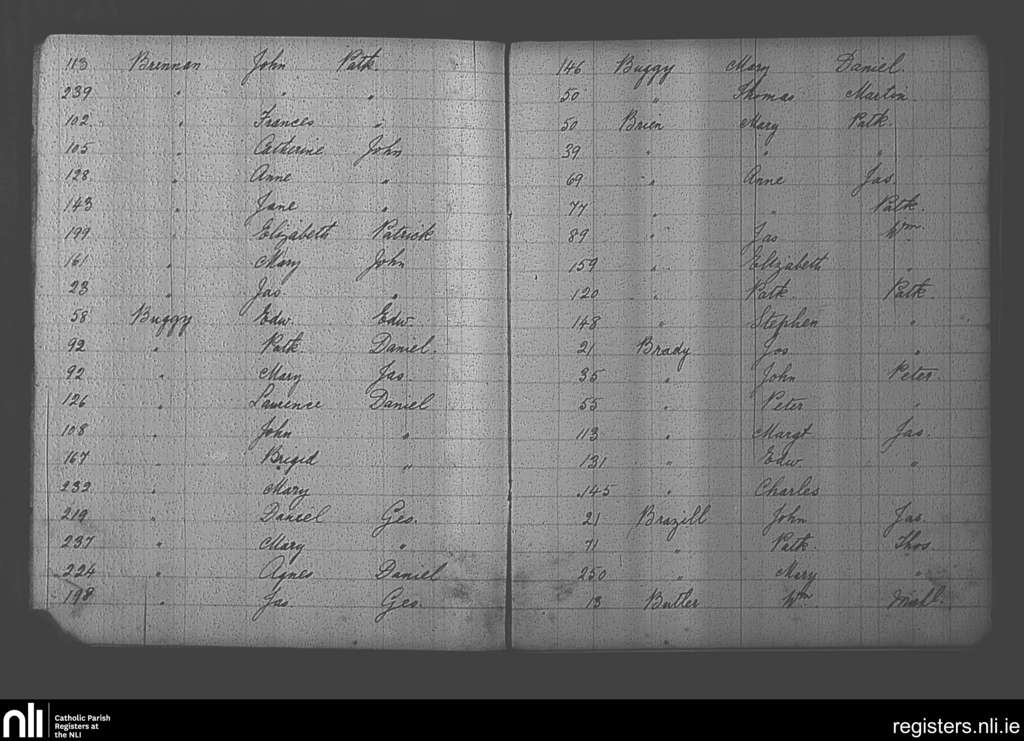 113 Brennan John Patk.
239 " " "
102 " Frances "
105 " Catherine John
128 " Anne "
143 " Jane "
199 " Elizabeth Patrick
161 " Mary John
23 " Jas. "
58 Buggy Edw. Edw.
92 " Patk. Daniel.
92 " Mary Jas.
126 " Laurence Daniel
108 " John "
167 " Brigid "
232 " Mary
219 " Daniel Geo.
237 " Mary "
224 " Agnes Daniel
198 " Jas. Geo.
146 Buggy Mary Daniel.
50 " Thomas Martin
50 Brien Mary Patk.
39 " " "
69 " Anne Jas.
77 " " Patk.
89 " Jas Wm.
159 " Elizabeth "
120 " Patk. Patk.
148 " Stephen "
21 Brady Jos "
35 " John Peter.
55 " Peter "
113 " Margt Jas.
131 " Edw. "
145 " Charles
21 Brazill John Jas.
71 " Patk. Thos.
250 " Mary "
13 Butler Wm Michl.
nli Catholic Parish
Registers at
the NLI
registers.nli.ie